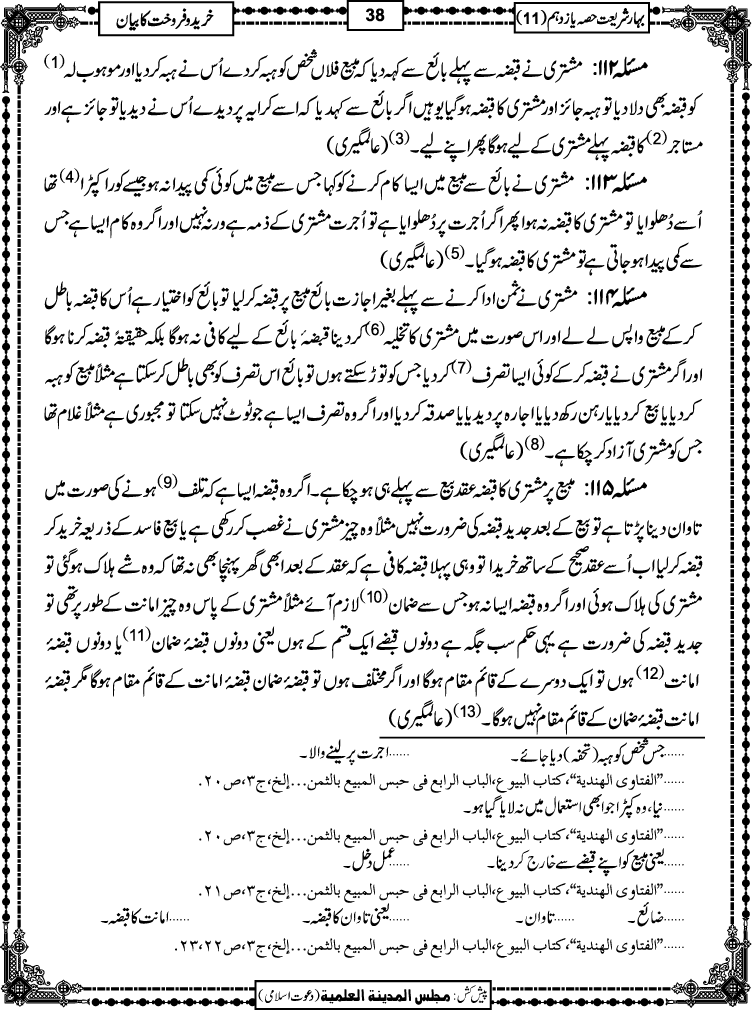 بہارِ شریعت حصہ یازدہم (11)
38
خرید و فروخت کا بیان
مسئلہ ۱۱۲: مشتری نے قبضہ سے پہلے بائع سے کہہ دیا کہ مبیع فلاں شخص کو ہبہ کر دے اُس نے ہبہ کر دیا اور موہوب لہ (1)
کو قبضہ بھی دلا دیا تو ہبہ جائز اور مشتری کا قبضہ ہو گیا یوہیں اگر بائع سے کہد یا کہ اسے کرایہ پر دیدے اُس نے دیدیا تو جائز ہے اور
مستاجر (2) کا قبضہ پہلے مشتری کے لیے ہوگا پھر اپنے لیے۔ (3) (عالمگیری)
مسئلہ ۱۱۳: مشتری نے بائع سے مبیع میں ایسا کام کرنے کو کہا جس سے مبیع میں کوئی کمی پیدا نہ ہو جیسے کورا کپڑا (4) تھا
اُسے دُھلوایا تو مشتری کا قبضہ نہ ہوا پھر اگر اُجرت پر دُھلوایا ہے تو اُجرت مشتری کے ذمہ ہے ورنہ نہیں اور اگر وہ کام ایسا ہے جس
سے کمی پیدا ہو جاتی ہے تو مشتری کا قبضہ ہو گیا۔ (5) (عالمگیری)
مسئلہ ۱۱۴: مشتری نے ثمن ادا کرنے سے پہلے بغیر اجازت بائع مبیع پر قبضہ کر لیا تو بائع کو اختیار ہے اُس کا قبضہ باطل
کر کے مبیع واپس لے لے اور اس صورت میں مشتری کا تخلیہ (6) کر دینا قبضۂ بائع کے لیے کافی نہ ہوگا بلکہ حقیقۃً قبضہ کرنا ہوگا
اور اگر مشتری نے قبضہ کر کے کوئی ایسا تصرف (7) کر دیا جس کو توڑ سکتے ہوں تو بائع اس تصرف کو بھی باطل کر سکتا ہے مثلاً مبیع کو ہبہ
کر دیا یا بیع کر دیا یا رہن رکھ دیا یا اجارہ پر دیدیا یا صدقہ کر دیا اور اگر وہ تصرف ایسا ہے جو ٹوٹ نہیں سکتا تو مجبوری ہے مثلاً غلام تھا
جس کو مشتری آزاد کر چکا ہے۔ (8) (عالمگیری)
مسئلہ ۱۱۵: مبیع پر مشتری کا قبضہ عقد بیع سے پہلے ہی ہو چکا ہے۔ اگر وہ قبضہ ایسا ہے کہ تلف (9) ہونے کی صورت میں
تاوان دینا پڑتا ہے تو بیع کے بعد جدید قبضہ کی ضرورت نہیں مثلاً وہ چیز مشتری نے غصب کر رکھی ہے یا بیع فاسد کے ذریعہ خرید کر
قبضہ کر لیا اب اُسے عقد صحیح کے ساتھ خریدا تو وہی پہلا قبضہ کافی ہے کہ عقد کے بعد ابھی گھر پہنچا بھی نہ تھا کہ وہ شے ہلاک ہوگئی تو
مشتری کی ہلاک ہوئی اور اگر وہ قبضہ ایسا نہ ہو جس سے ضمان (10) لازم آئے مثلاً مشتری کے پاس وہ چیز امانت کے طور پر تھی تو
جدید قبضہ کی ضرورت ہے یہی حکم سب جگہ ہے دونوں قبضے ایک قسم کے ہوں یعنی دونوں قبضۂ ضمان (11) یا دونوں قبضۂ
امانت (12) ہوں تو ایک دوسرے کے قائم مقام ہوگا اور اگر مختلف ہوں تو قبضۂ ضمان قبضۂ امانت کے قائم مقام ہوگا مگر قبضۂ
امانت قبضۂ ضمان کے قائم مقام نہیں ہوگا۔ (13) (عالمگیری)
......جس شخص کو ہبہ (تحفہ) دیا جائے۔ ......اجرت پر لینے والا۔
......”الفتاوی الهندیة“، کتاب البیوع، الباب الرابع فی حبس المبیع بالثمن...إلخ، ج۳، ص۲۰.
......نیا، وہ کپڑا جو ابھی استعمال میں نہ لایا گیا ہو۔
......”الفتاوی الهندیة“، کتاب البیوع، الباب الرابع فی حبس المبیع بالثمن...إلخ، ج۳، ص۲۰.
......یعنی مبیع کو اپنے قبضے سے خارج کر دینا۔ ......عمل دخل۔
......”الفتاوی الهندیة“، کتاب البیوع، الباب الرابع فی حبس المبیع بالثمن...إلخ، ج۳، ص۲۱.
......ضائع۔ ......تاوان۔ ......یعنی تاوان کا قبضہ۔ ......امانت کا قبضہ۔
......”الفتاوی الهندیة“، کتاب البیوع، الباب الرابع فی حبس المبیع بالثمن...إلخ، ج۳، ص۲۲،۲۳.
پیش کش: مجلس المدینة العلمیة (دعوت اسلامی)